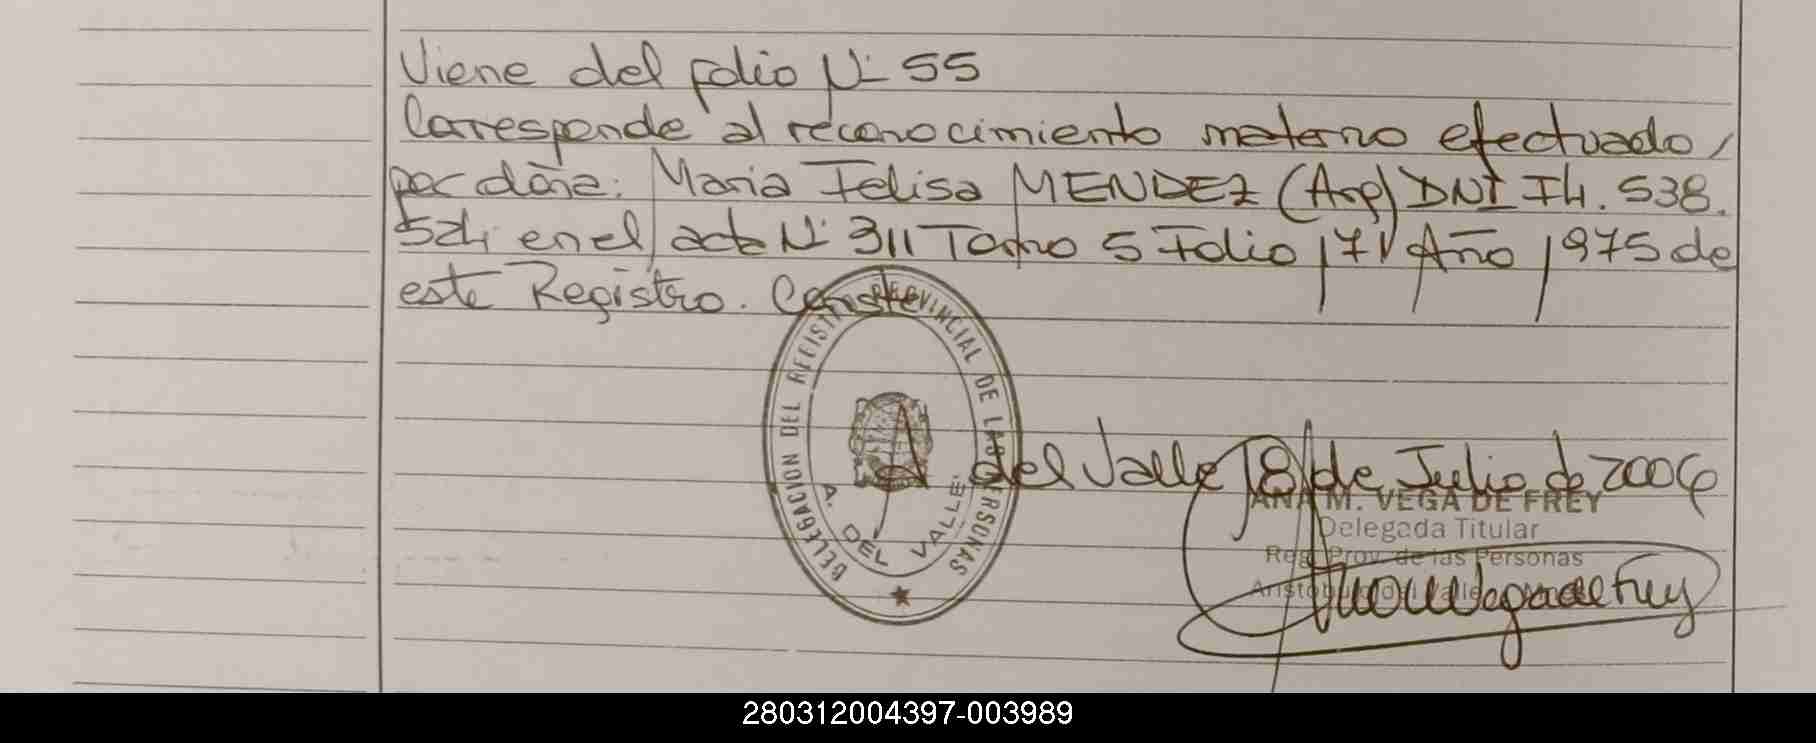 Viene del folio N° 55
Corresponde al reconocimiento materno efectuado/
por doña: Maria Felisa MENDEZ (Arg) DNI F4.538.
524 en el acta N° 311 Tomo 5 Folio 171 Año 1975 de
este Registro. Conste
DELEGACION DEL REGISTRO PROVINCIAL DE LAS PERSONAS
A. DEL VALLE
A. del Valle 18 de Julio de 2006
ANA M. VEGA DE FREY
Delegada Titular
Reg. Prov. de las Personas
Aristobulo del Valle
Ana M Vega de Frey
280312004397-003989